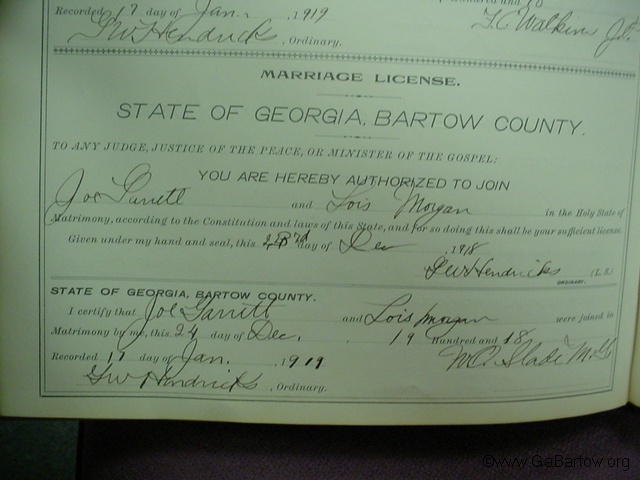 Recorded 17 day of Jan. 1919
GW Hendricks, Ordinary.
T.C. Watkins J.P.
MARRIAGE LICENSE.
STATE OF GEORGIA, BARTOW COUNTY.
TO ANY JUDGE, JUSTICE OF THE PEACE, OR MINISTER OF THE GOSPEL:
YOU ARE HEREBY AUTHORIZED TO JOIN
Joe Garrett and Lois Morgan in the Holy State of
Matrimony, according to the Constitution and laws of this State, and for so doing this shall be your sufficient license.
Given under my hand and seal, this day of Dec 1918
GW Hendricks (L.S.)
ORDINARY.
STATE OF GEORGIA, BARTOW COUNTY.
I certify that Joe Garrett and Lois Morgan were joined in
Matrimony by me, this 24 day of Dec. 19 Hundred and 18
Recorded 17 day of Jan. 1919 Slade M.G.
GW Hendricks, Ordinary.
©www.GaBartow.org